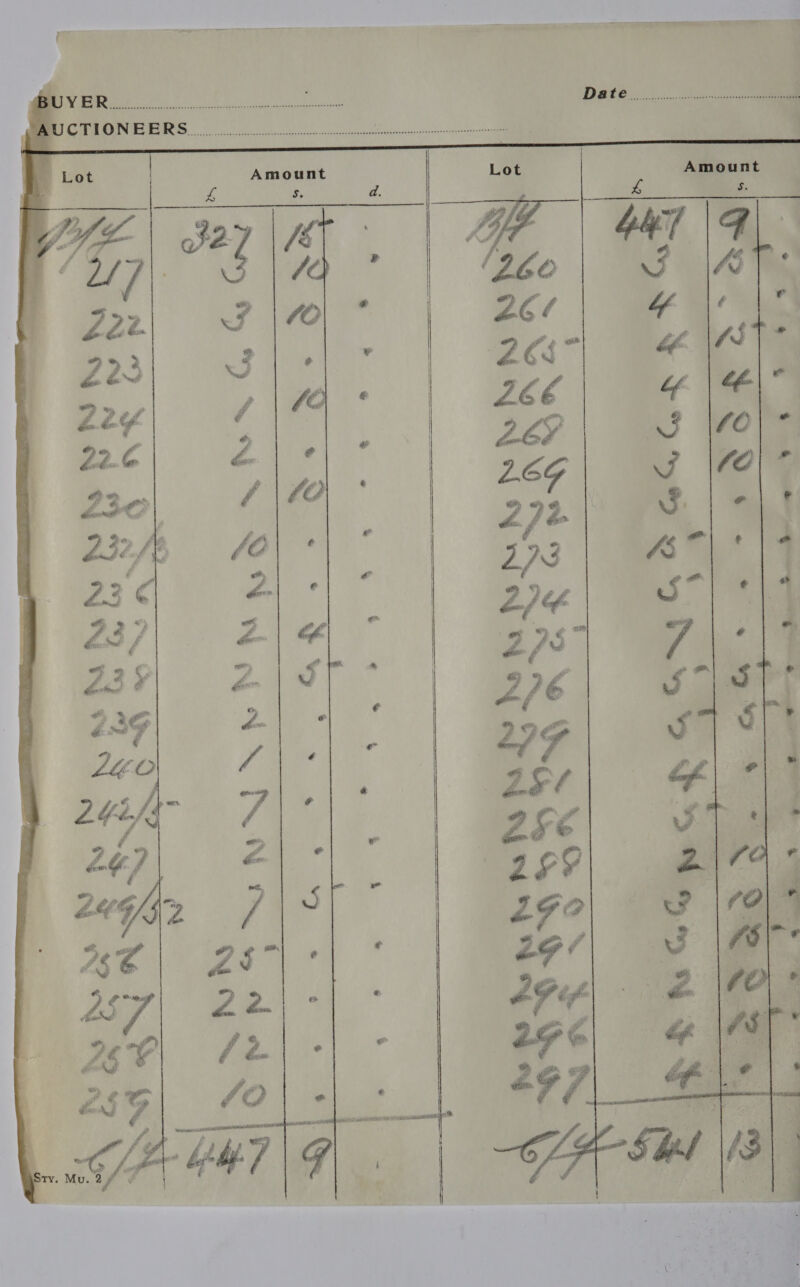 BUYER
Date
AUCTIONEERS
Lot Amount
£ s. d.
B/F 327 15 .
217 3 10 .
222 3 10 .
223 3 . .
224 1 10 .
226 2 . .
230 1 10 .
232/3 10 . .
236 2 . .
237 2 4 .
238 2 5 .
239 2 . .
240 1 . .
242/5 7 . .
247 2 . .
249/52 7 5 .
256 25 . .
257 22 . .
258 12 . .
259 10 . .
C/F 447 9 .
STY. MU. 2
Lot Amount
£ s.
B/F 447 9
260 3 15 .
261 4 . .
265 4 15 .
266 4 4 .
268 3 10 .
269 3 10 .
272 3 . .
273 15 . .
274 5 . .
275 7 . .
276 5 5 .
279 5 5 .
281 4 . .
286 5 . .
288 2 10 .
290 3 10 .
291 3 15 .
294 2 10 .
296 4 15 .
297 4 . .
C/F 541 13